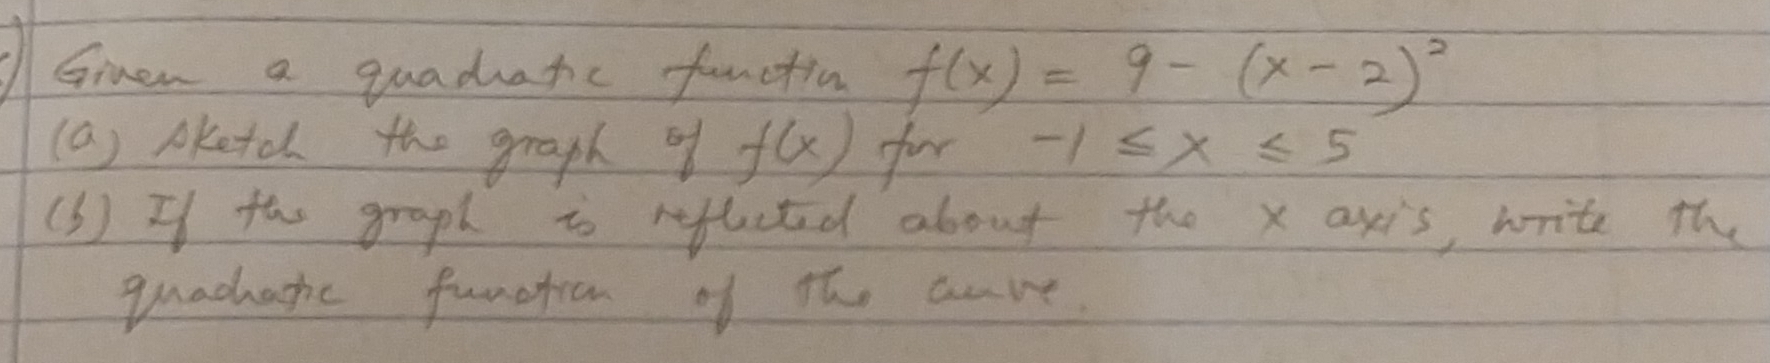 Given a quadratic function f(x) = 9 - (x - 2)²
(a) sketch the graph of f(x) for -1 ≤ x ≤ 5
(b) If the graph is reflected about the x axis, write the
quadratic function of the curve.